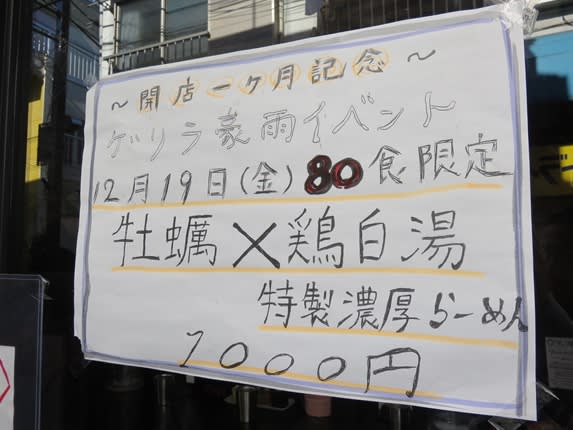 ～開店一ヶ月記念～
ゲリラ豪雨イベント
12月19日(金)80食限定
牡蠣×鶏白湯
特製濃厚らーめん
1000円